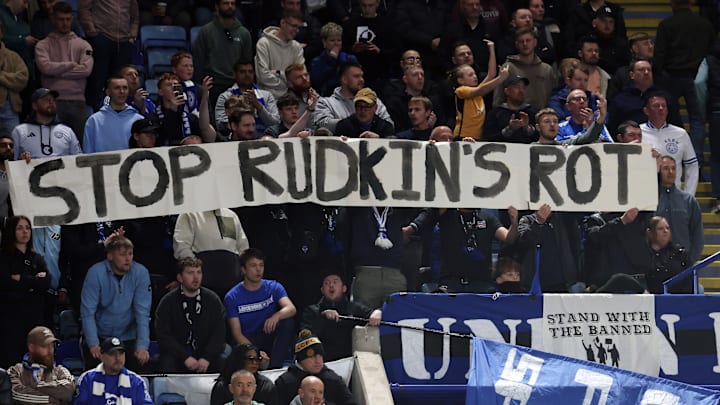 STOP RUDKIN'S ROT
STAND WITH
THE BANNED
UN